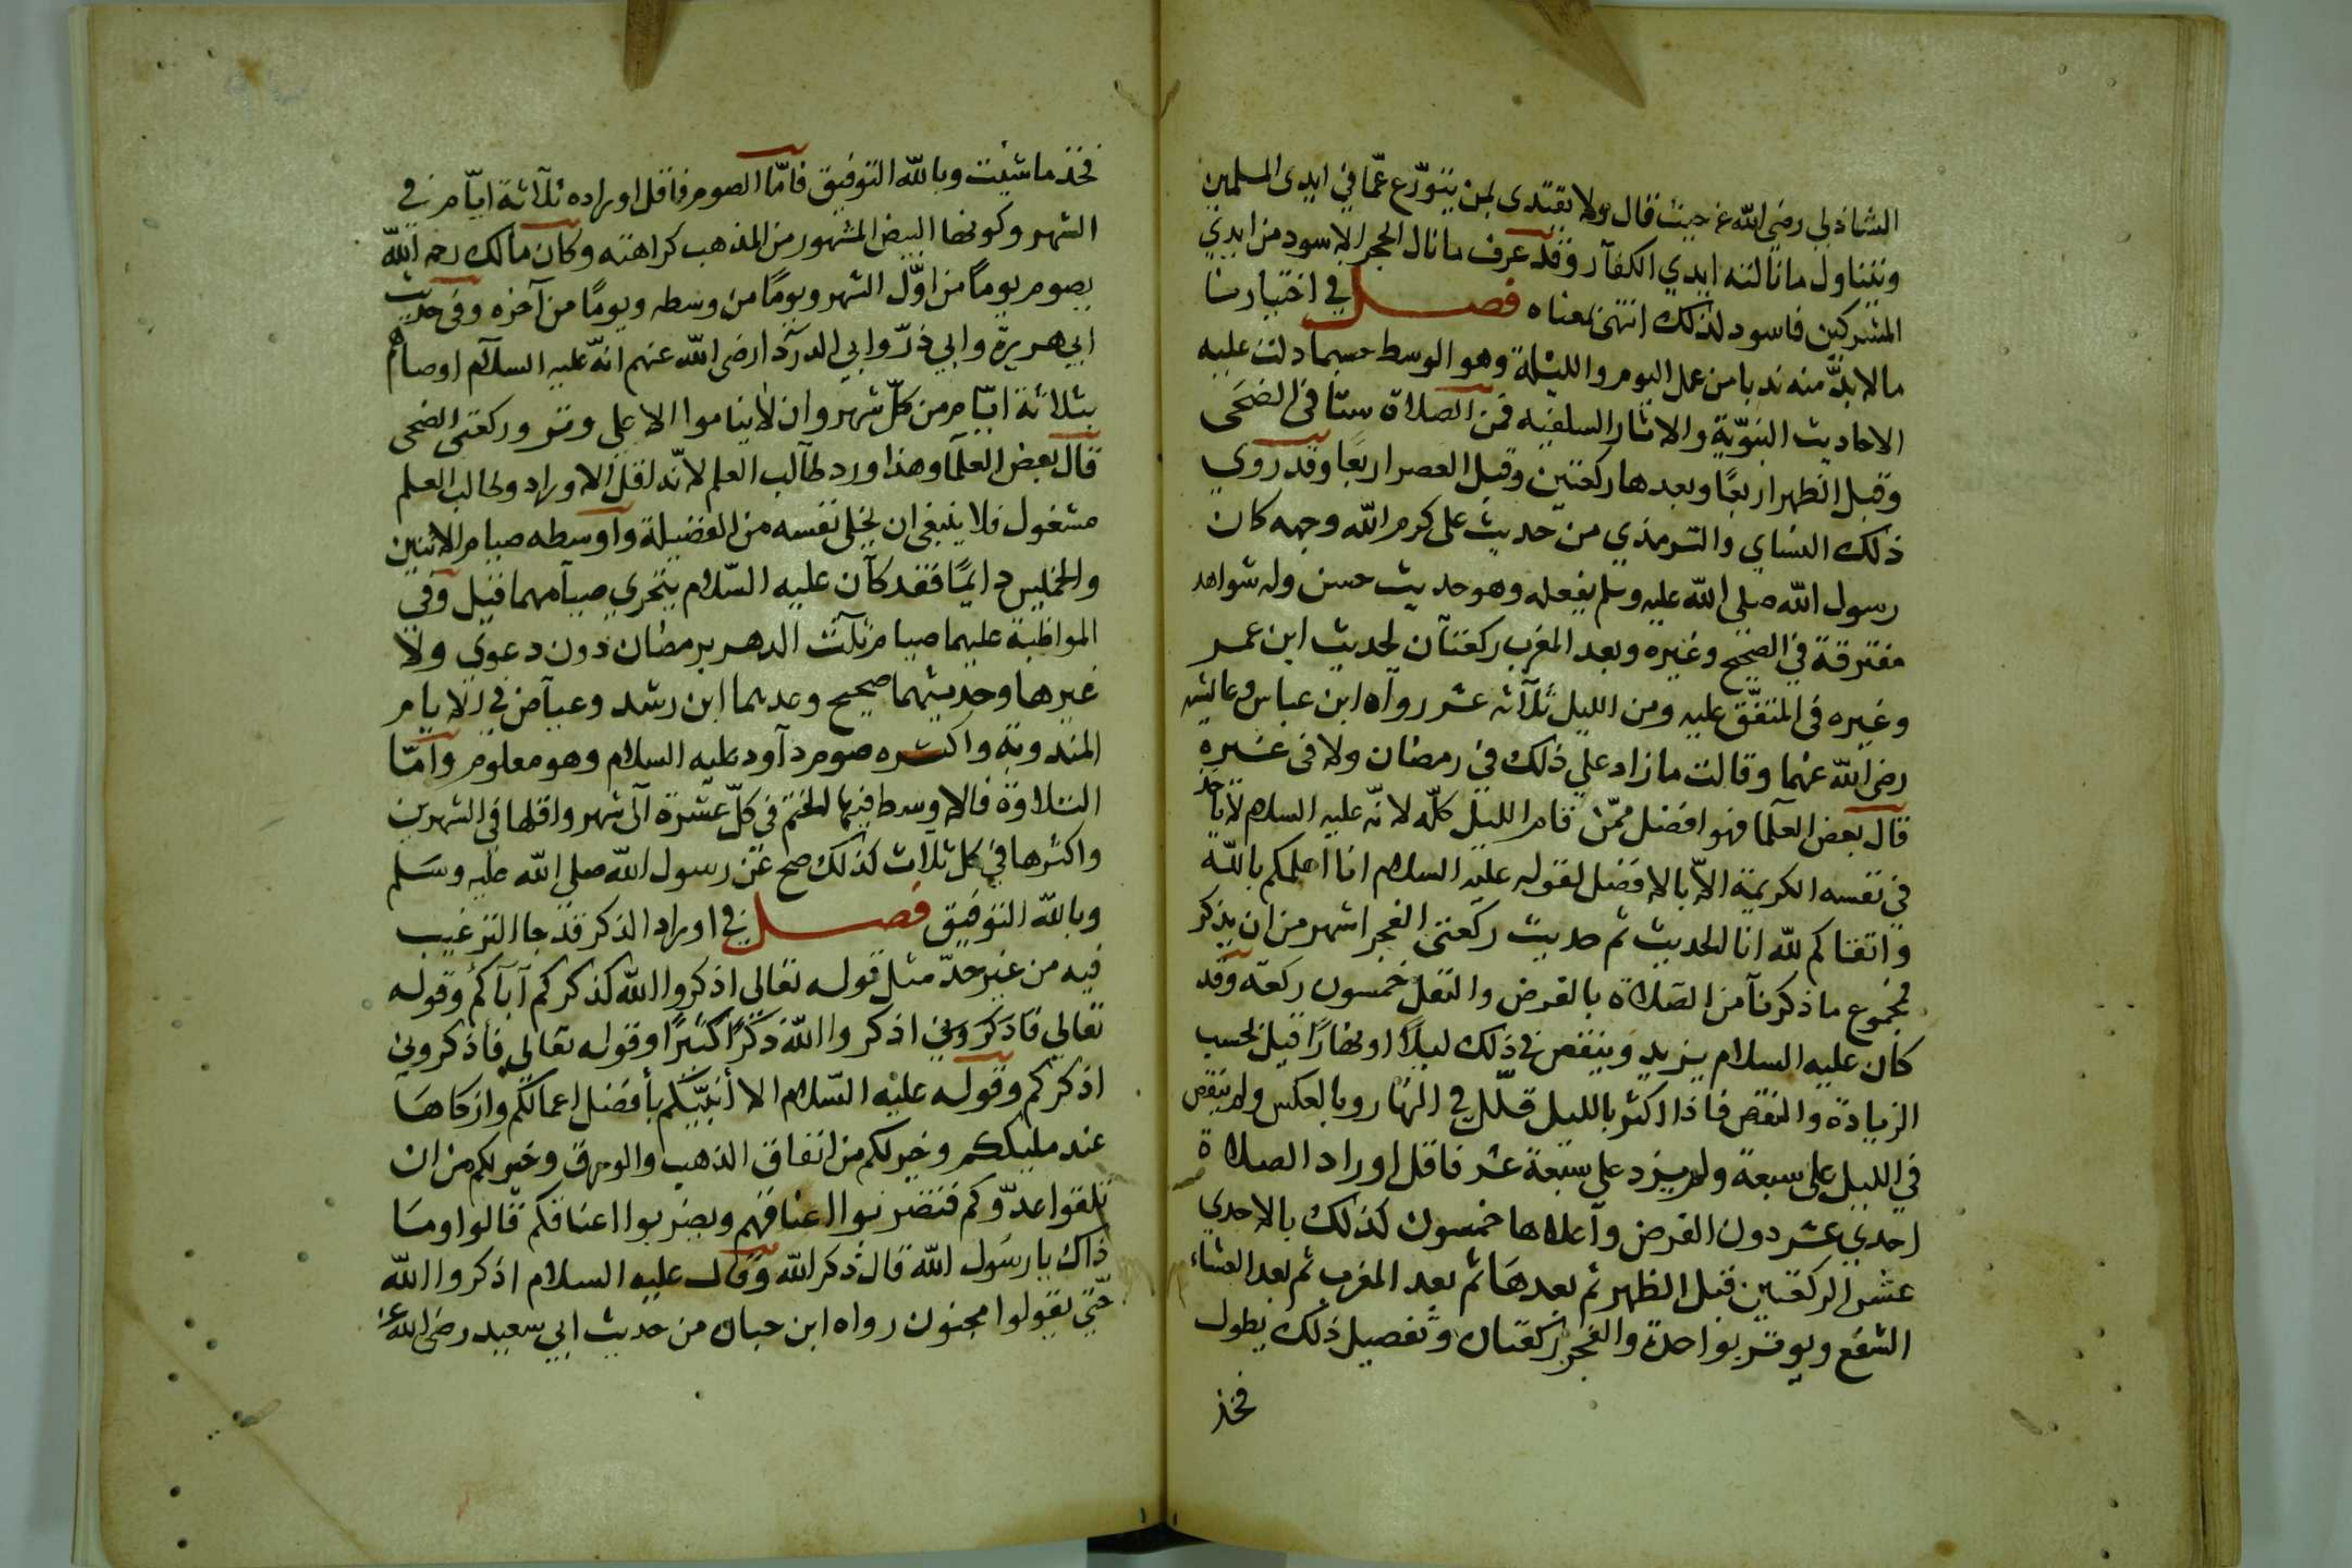 الشاذلي رضي الله عنه حيث قال ولا يقتدى بمن يتورّع عمّا في ايدى المسلمين
ويتناول ما نالته ايدي الكفار وقد عرف ما نال الحجر الاسود من ايدي
المشركين فاسود لذلك انتهى بمعناه فصل في اختيار منا
ما لا بدّ منه ندبا من عمل اليوم والليلة وهو الوسط حسبما دلت عليه
الاحاديث النبوّية والاثار السلفيه فمن الصلاة ستا في الضحى
وقبل الظهر اربعًا وبعدها ركعتين وقبل العصر اربعًا وقد روي
ذلك النساي والترمذي من حديث على كرم الله وجهه كان
رسول الله صلى الله عليه وسلم يفعله وهو حديث حسن وله شواهد
مفترقة في الصحيح وغيره وبعد المغرب ركعتان لحديث ابن عمر
وغيره في المتفّق عليه ومن الليل ثلاثه عشر رواه ابن عباس وعايشه
رضى الله عنهما وقالت ما زاد علي ذلك في رمضان ولا في غيره
قال بعض العلما فهو افضل ممّن قام الليل كلّه لانّه عليه السلام لا ياخذ
في نفسه الكريمة الاّ بالافضل لقوله عليه السلام انا اعلمكم بالله
واتقاكم لله انا الحديث ثم حديث ركعتى الفجر اشهر من ان يذكر
فمجموع ما ذكرنا من الصلاة بالفرض والنفل خمسون ركعة وقد
كان عليه السلام يزيد وينقص في ذلك ليلًا او نهارًا قيل بحسب
الزيادة والنقص فاذا اكثر بالليل قلّل في النهار وبالعكس ولم ينقص
في الليل على سبعة ولم يزد على سبعة عشر فاقل اوراد الصلاة
احدي عشر دون الفرض واعلاها خمسون كذلك بالاحدي
عشر الركعتين قبل الظهر ثم بعدها ثم بعد المغرب ثم بعد العشاء
الشفع ويوتر بواحدة والفجر ركعتان وتفصيل ذلك يطول
فخذ
فخذ ما شيت وبالله التوفيق فامّا الصوم فاقل اوراده ثلاثة ايّام في
الشهر وكونها البيض المشهور من المذهب كراهته وكان مالك رحمه الله
يصوم يومًا من اوّل الشهر ويومًا من وسطه ويومًا من آخره وفي حديث
ابي هريرة وابي ذرّ وابي الدردا رضى الله عنهم انّه عليه السلام اوصاهم
بثلاثة ايّام من كلّ شهر وان لا يناموا الا علي وتر وركعتى الضحى
قال بعض العلما وهذا ورد طالب العلم لانّه اقل الاوراد وطالب العلم
مشغول فلا ينبغى ان يخلى نفسه من الفضيلة واوسطه صيام الاثنين
والخميس دايمًا فقد كان عليه السّلام يتحري صيامهما قيل وفي
المواظبة عليهما صيام ثلث الدهر برمضان دون دعوي ولا
غيرها وحديثهما صحيح وعدهما ابن رشد وعياض في الايام
المندوبة واكثره صوم داود عليه السلام وهو معلوم وامّا
التلاوة فالاوسط فيها الختم في كلّ عشرة الى شهر واقلها في الشهرين
واكثرها في كل ثلاث كذلك صح عن رسول الله صلى الله عليه وسلم
وبالله التوفيق فصل في اوراد الذكر قد جا الترغيب
فيه من غير حدّ مثل قوله تعالى اذكروا الله كذكركم آباكم وقوله
تعالى فاذكروني اذكروا الله ذكرًا كثيرًا وقوله تعالى فاذكروني
اذكركم وقوله عليه السّلام الا أنبّيكم بأفضل اعمالكم وازكاها
عند مليككم وخير لكم من انفاق الذهب والورق وخير لكم من ان
تلقوا عدّوكم فتضربوا اعناقهم ويضربوا اعناقكم قالوا وما
ذاك يا رسول الله قال ذكر الله وقال عليه السلام اذكروا الله
حتّي يقولوا مجنون رواه ابن حبان من حديث ابي سعيد رضى الله عنه